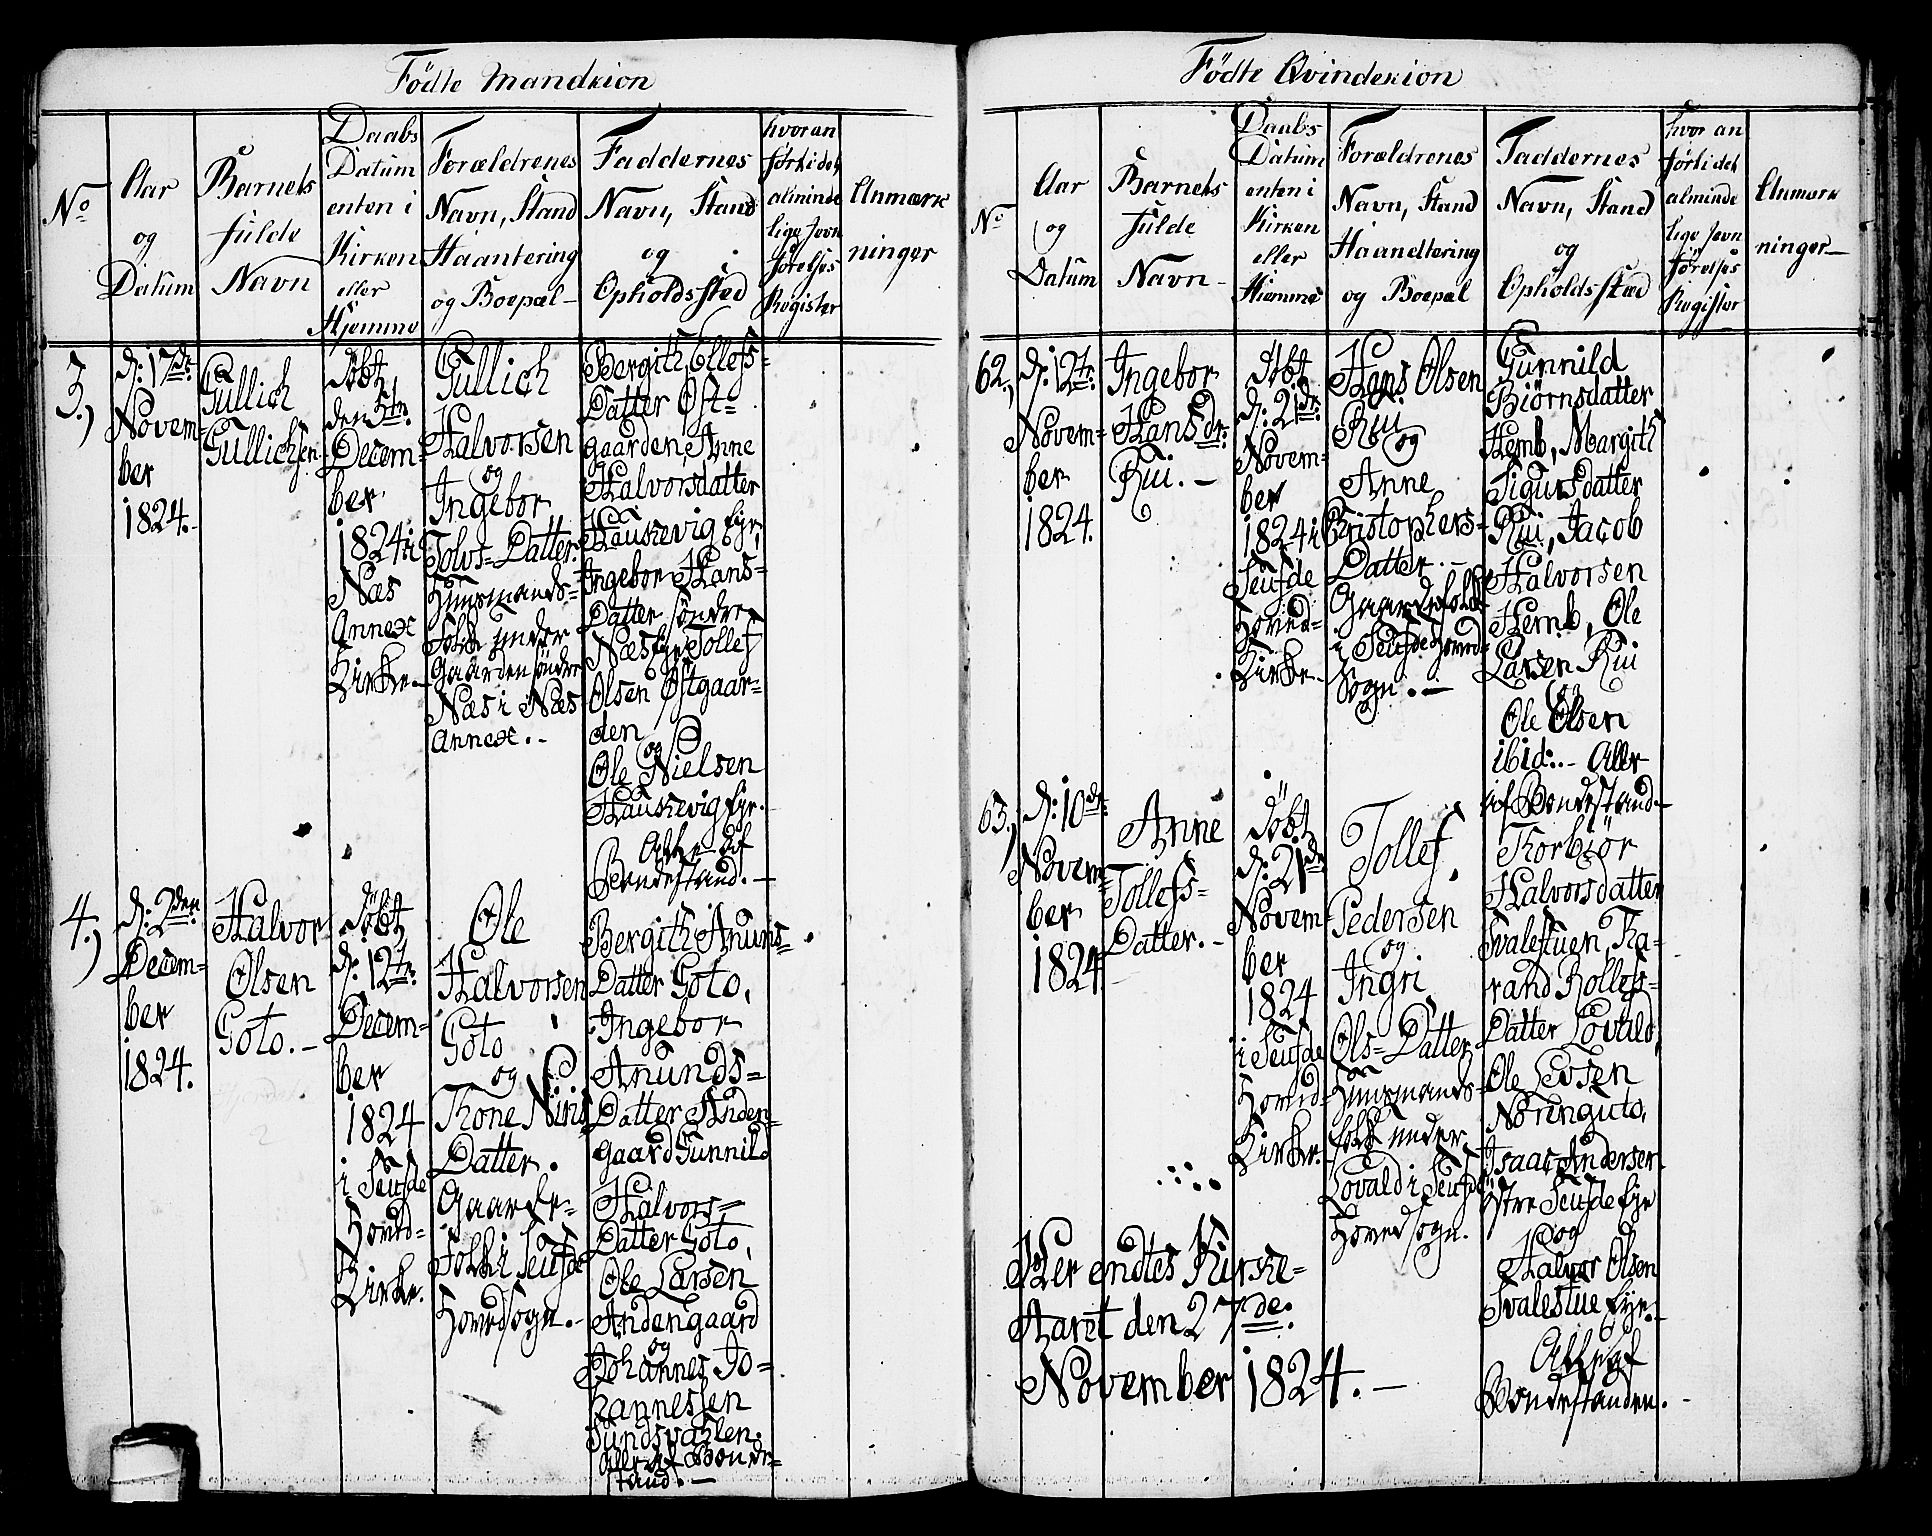 Födte Mandkion
No
Aar
og
Datum
Barnets
fulde
Navn
Daabs
Datum
enten i
Kirken
eller
Hjemme
Forældrenes
Navn, Stand
Haantering
og Boepæl
Faddernes
Navn, Stand
og
Opholdssted
hvor an
förti det
alminde
lige Jevn
förelses
Register
Anmærk
ninger
3.)
d: 17de
Novem=
ber
1824.-
Gullich
Gullichsen
döbt
den 5te
Decem=
ber
1824 i
Næs
Annex
Kirke.-
Gullich
Halvorsen
og
Ingebor
Tolvs=Datter
Huusmands=
Folk under
Gaarden söndre
Næs i Næs
Annex.-
Bergith Ellefs=
Datter Øst=
gaarden, Anne
Halvorsdatter
Haukevig Eje,
Ingebor Hans=
Datter söndre
Næs Eje Tollef
Olsen Østgaar=
den
og
Ole Nielsen
Haukevig Eje.-
Alle af
Bondestand.-
4.)
d: 2den
Decem=
ber
1824.
Halvor
Olsen
Goto.-
döbt
d: 12te
Decem=
ber
1824
i Seufde
Hoved=
Kirke.
Ole
Halvorsen
Goto
og
Thone
Datter.
Gaarde=
Folk i Seufde
Hovedsogn.-
Bergith
Datter Goto,
Ingebor
Anunds=
Datter Anden=
gaard Gunnild
Halvors=
Datter Goto,
Ole Larsen
Andengaard
og
Johannes Jo=
hannessen
Sundsvahlen.
Aller af Bonde=
stand.-
Födte Qvindekion
No
Aar
og
Datum
Barnets
fulde
Navn
Daabs
Datum
enten i
Kirken
eller
Hiemme
Forældrenes
Navn, Stand
Haandtering
og Boepæl
Faddernes
Navn, Stand
og
Opholdssted
hvor an
förti det
alminde
lige Jevn
förelses
Register
Anmærk
ninger
62.)
d: 12te
Novem=
ber
1824.
Ingebor
Hansdr:
Rui.-
Döbt
d: 21de
Novem=
ber
1824 i
Seufde
Hoved=
Kirke.-
Hans Olsen
Rui
og
Anne
Cristophers=
Datter.-
Gaardefolk
i Seufde Hoved=
Sogn.-
Gunnild
Biörnsdatter
Hemb, Margith
Sigursdatter
Rui, Jacob
Halvorsen
Hemb, Ole
Larsen Rui
og
Ole Olsen
ibid:.- Aller
af Bondestand.-
63.)
d: 10de
Novem=
ber
1824.-
Anne
Tollefs=
Datter.-
döbt
d: 21de
Novem
ber
1824
i Seufde
Hoved=
Kirke.-
Tollef
Pedersen
og
Ingri
Ols=Datter
Huusmands=
folk under
Lovald i Seufde
Hovedsogn.
Thorbiör
Halvorsdatter
Svalestuen, Ta=
rand Rollefs=
Datter Lovald,
Ole Levsen
Norenguto,
Isaac Andersen
østre Seufde Eje
og
Halvor Olsen
Svalestue Eje.-
Alle af
Bondestanden.-
Her endtes Kirke=
Aaret den 27de.
November 1824.-